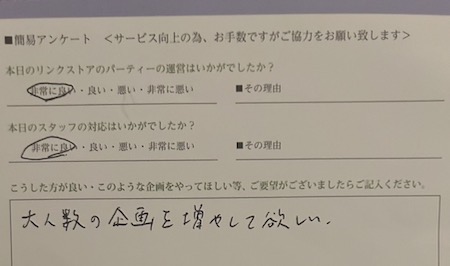 ■簡易アンケート　＜サービス向上の為、お手数ですがご協力をお願い致します＞
本日のリンクストアのパーティーの運営はいかがでしたか？
非常に良い・良い・悪い・非常に悪い　■その理由
本日のスタッフの対応はいかがでしたか？
非常に良い・良い・悪い・非常に悪い　■その理由
こうした方が良い・このような企画をやってほしい等、ご要望がございましたらご記入ください。
大人数の企画を増やして欲しい。